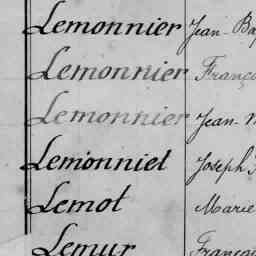 Lemonnier Jean Ba
Lemonnier Franço
Lemonnier Jean
Lemonniet Joseph
Lemot Marie
Lemur Françoi